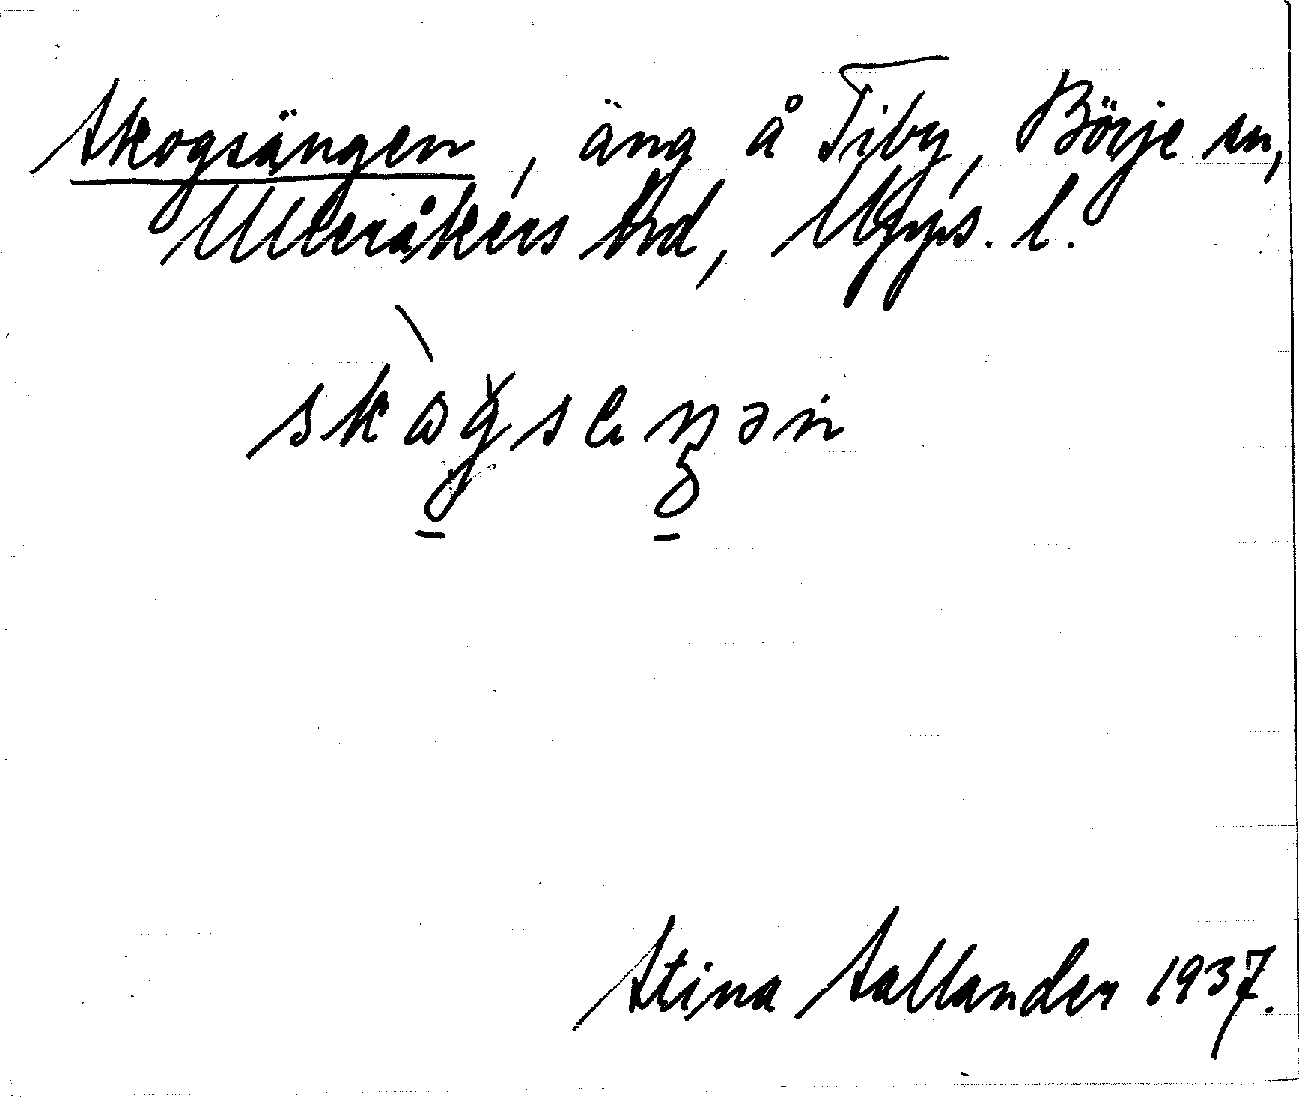 Skogsängen, äng å Tiby, Börje sn,
Ulleråkers hrd, Upps. l.
Stina Sallander 1937.